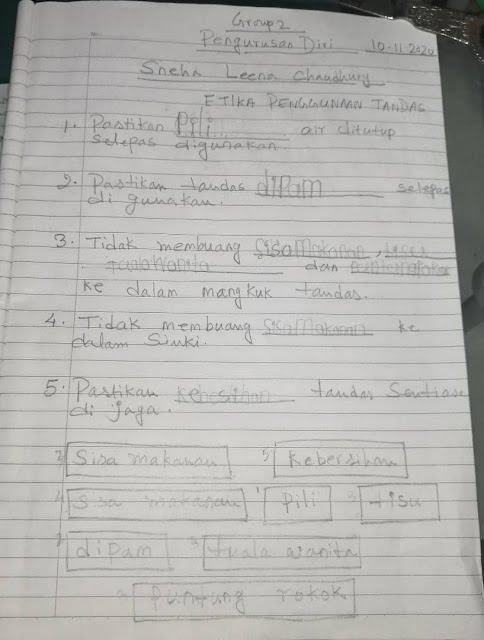 Group 2
Pengurusan Diri 10-11-2020
Sneha Leena Chaudhury
ETIKA PENGGUNAAN TANDAS
1. Pastikan Pili air ditutup
selepas digunakan
2. Pastikan tandas dipam selepas
di gunakan.
3. Tidak membuang SisaMakanan,
TualaWanita dan
ke dalam mangkuk tandas.
4. Tidak membuang SisaMakanan ke
dalam Sinki.
5. Pastikan tandas Sentiasa
di jaga.
3 Sisa makanan 5 Kebersihan
4 Sisa makanan 1 Pili 3 tisu
2 dipam 3 tuala wanita
3 Puntung rokok